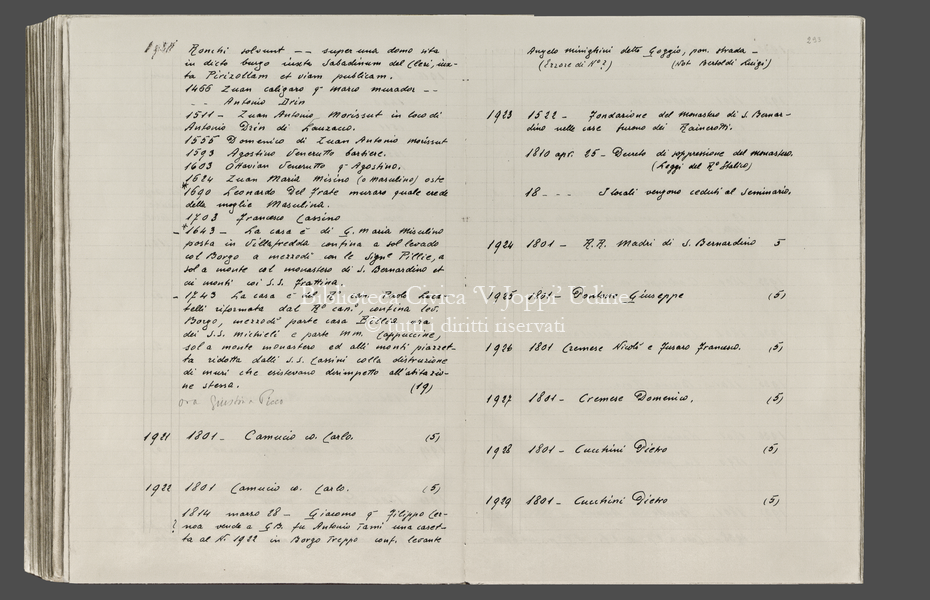 Ronchi solvunt -- super una domo sita
in dicto burgo iuxta Sabadinum del Cleri, iux-
ta Pirizollam et viam publicam.
1466 Zuan caligaro q^m marco murador --
-- Antonio Drin
1511 - Zuan Antonio Morissut in loco di
Antonio Drin di Lauzacco.
1555 Domenico di Zuan Antonio morissut
1593 Agostino Venerutto barbiere.
1603 Ottavian Venerutto q^m Agostino.
1624 Zuan Maria Misino (o Masutino) oste
1690 Leonardo Del Frate muraro quale erede
della moglie Masutina.
1703 Francesco Cassino
1643 - La casa è di G. Maria Misutino
posta in Villafredda confina a sol levado
col Borgo a mezzodì con le Sign^e Pillie, a
sol a monte col monastero di S. Bernardino et
ai monti coi S.S. Frattina.
- 1743 La casa è del
telli riformata dal R^o can.^o, confina lev.
Borgo, mezzodì parte casa Billia ora
dei S.S. Michieli e parte MM. Cappuccine,
sol a monte monastero ed alli monti piazzet-
ta ridotta dalli S.S. Cassini colla distruzione
di muri che esistevano dirimpetto all'abitazio-
ne stessa. (19)
ora
1921 1801 - Camucio co. Carlo. (5)
1922 1801 Camucio co. Carlo. (5)
1814 marzo 28 - Giacomo q^m Filippo Cer-
? noa vende a GB. fu Antonio Tami una caset-
ta al N. 1922 in Borgo Treppo conf. levante
293
Angelo Minighini detto Goggio, pon. strada -
(Errore di N^o ?) (Not. Bertoldi Luigi)
1923 1522 - Fondazione del monastero di S. Bernar-
dino nelle case furono dei Rainerotti.
1810 apr. 25 - Decreto di soppressione del monastero.
(Leggi del R^o Italico)
18 - - - I locali vengono ceduti al Seminario.
1924 1801 - R.R. Madri di S. Bernardino 5
1925 1801 Giuseppe (5)
1926 1801 Cremese Nicolò e Fusaro Francesco. (5)
1927 1801 - Cremese Domenico. (5)
1928 1801 - Cucchini Pietro (5)
1929 1801 - Cucchini Pietro (5)
Biblioteca Civica 'V. Joppi' Udine
© tutti i diritti riservati